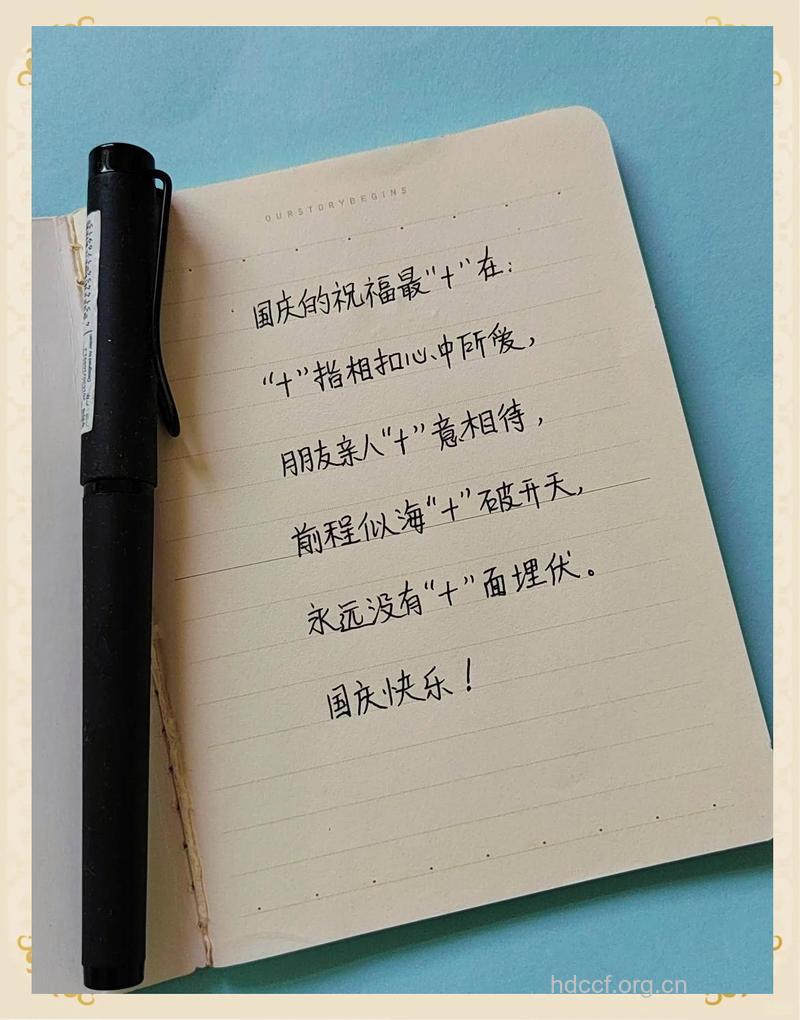 OURSTORYBEGINS
国庆的祝福最“十”在：
“十”指相扣心中所爱，
朋友亲人“十”意相待，
前程似海“十”破开天，
永远没有“十”面埋伏。
国庆快乐！
hdccf.org.cn